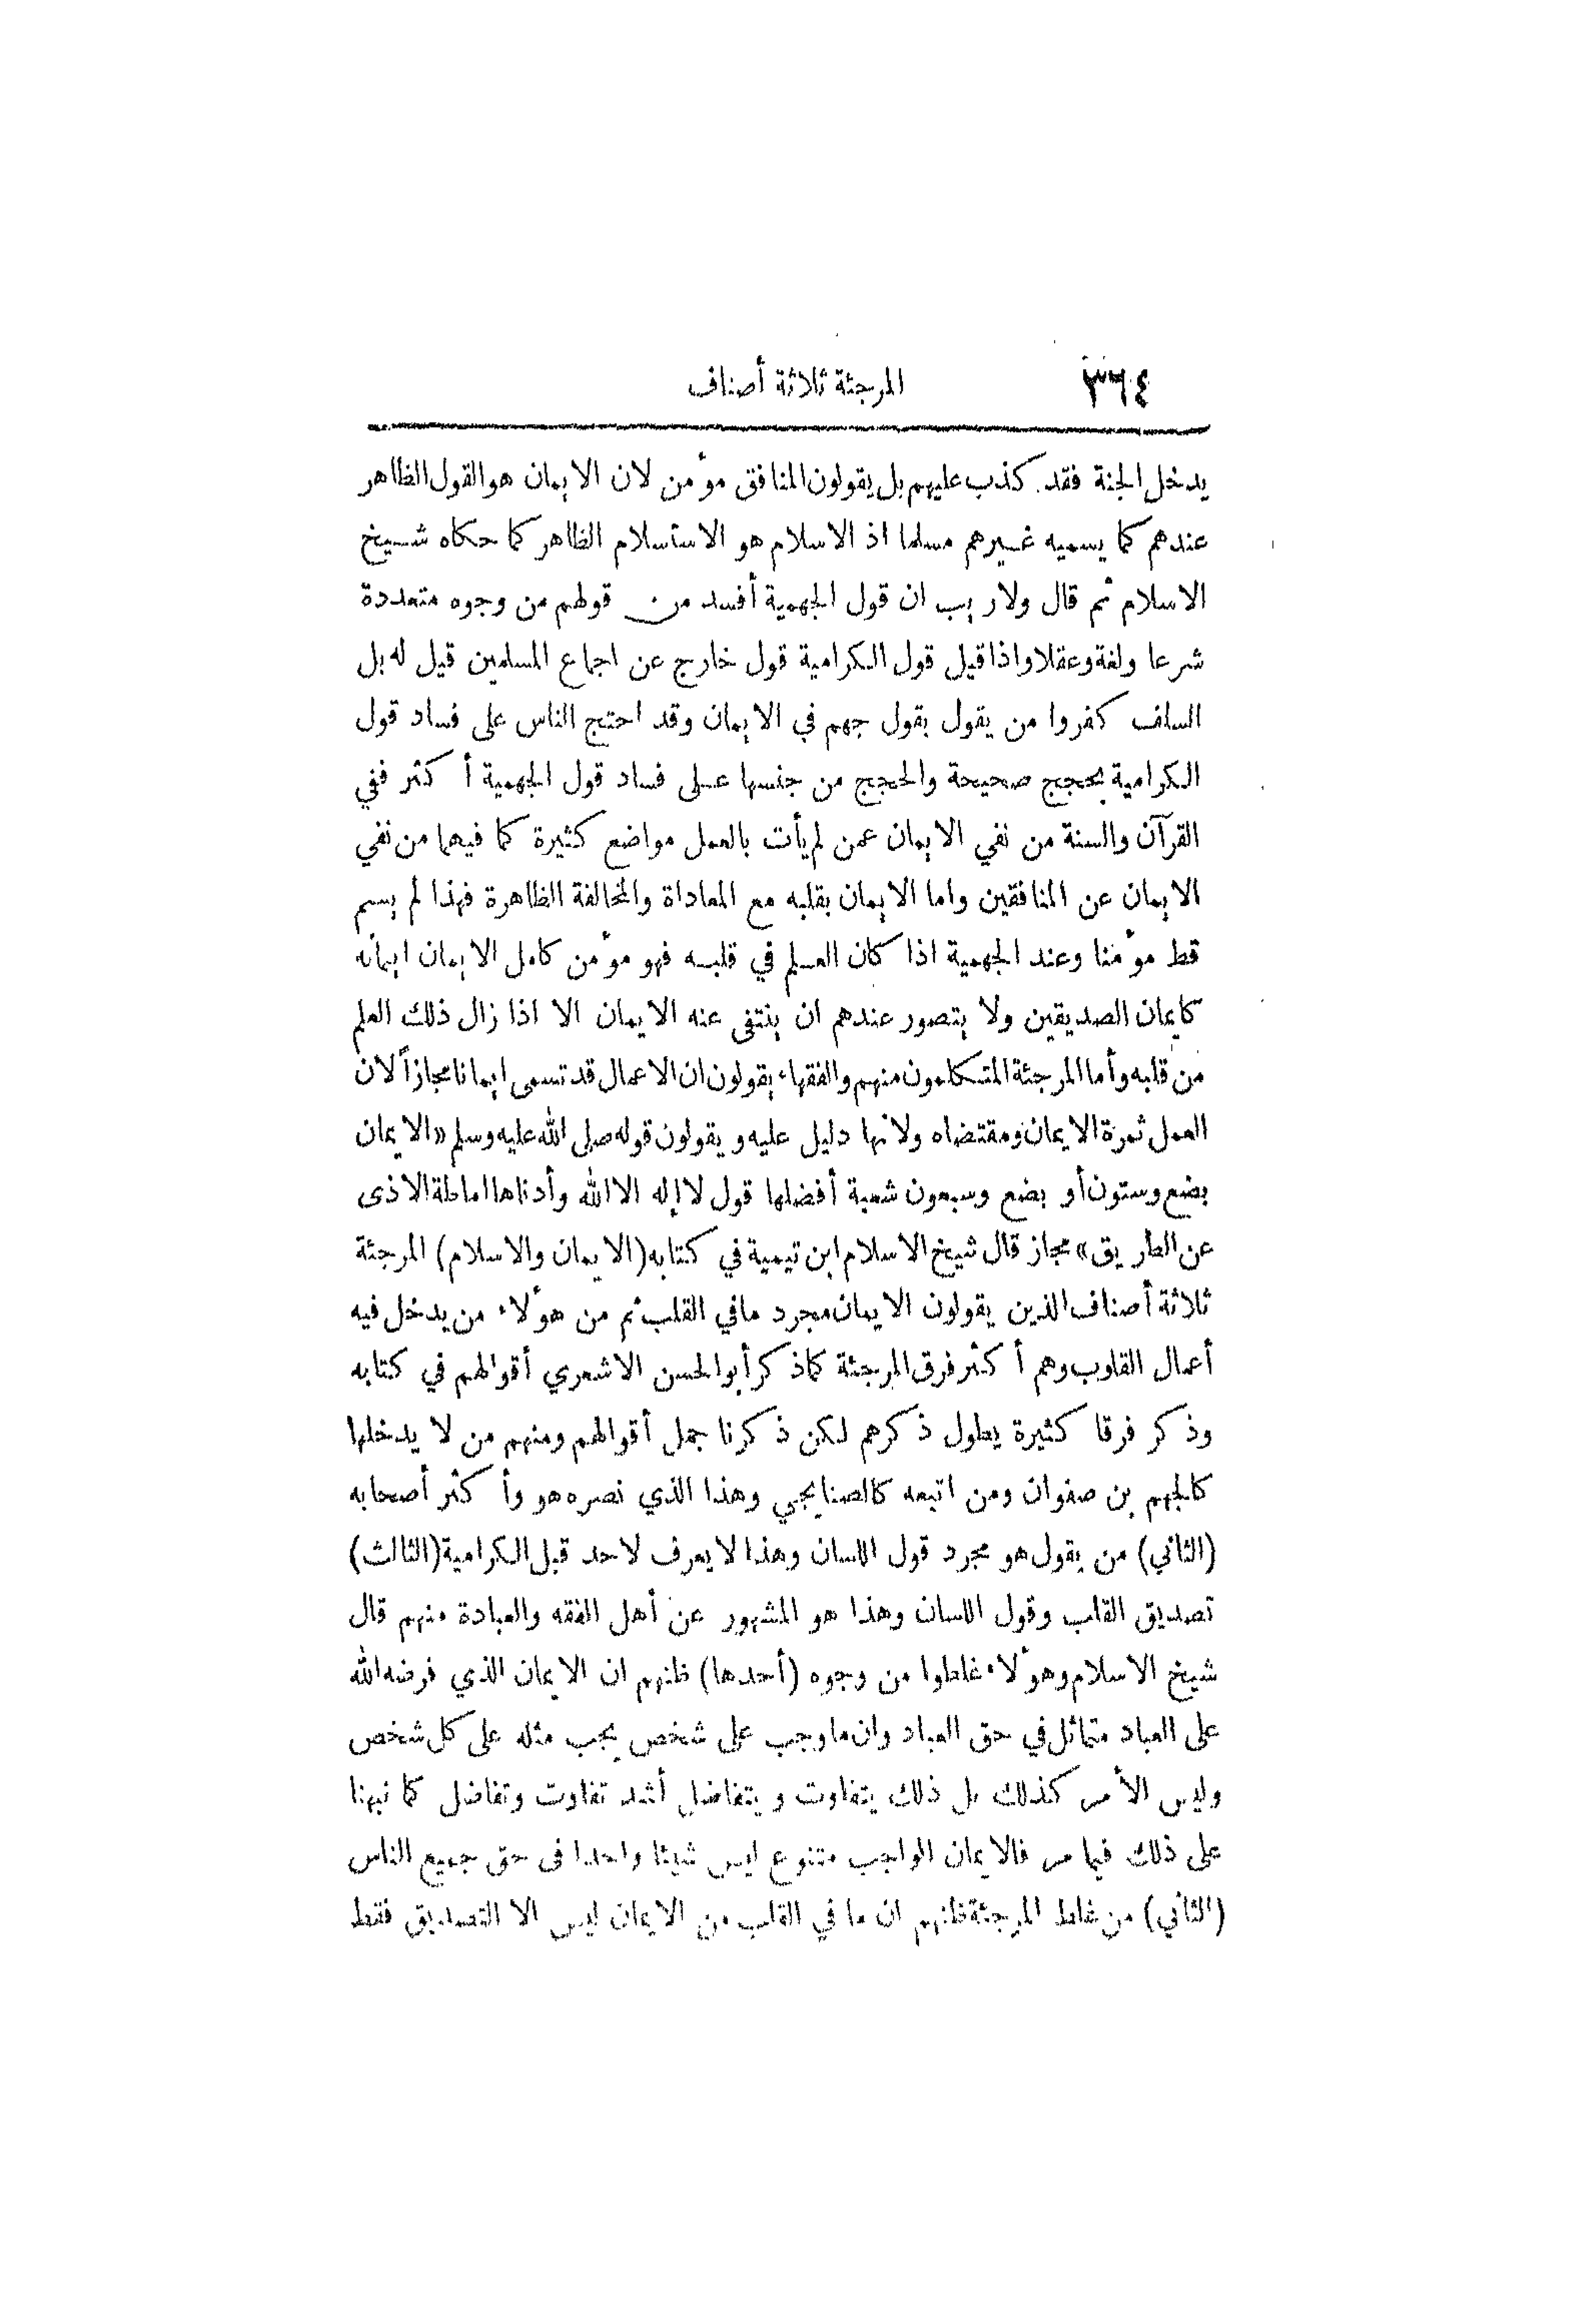 ٣٦٤ المرجئة ثلاثة أصناف
يدخل الجنة فقد كذب عليهم بل يقولون المنافق مؤمن لان الايمان هو القول الظاهر
عندهم كما يسميه غيرهم مسلما اذ الاسلام هو الاستسلام الظاهر كما حكاه شيخ
الاسلام ثم قال ولا ريب ان قول الجهمية أفسد من قولهم من وجوه متعددة
شرعا ولغة وعقلا واذا قيل قول الكرامية قول خارج عن اجماع المسلمين قيل له بل
السلف كفروا من يقول بقول جهم في الايمان وقد احتج الناس على فساد قول
الكرامية بحجج صحيحة والحجج من جنسها على فساد قول الجهمية أكثر ففي
القرآن والسنة من نفي الايمان عمن لم يأت بالعمل مواضع كثيرة كما فيهما من نفي
الايمان عن المنافقين واما الايمان بقلبه مع المعاداة والمخالفة الظاهرة فهذا لم يسم
قط مؤمنا وعند الجهمية اذا كان العلم في قلبه فهو مؤمن كامل الايمان ايمانه
كايمان الصديقين ولا يتصور عندهم ان ينتفى عنه الايمان الا اذا زال ذلك العلم
من قلبه وأما المرجئة المتكلمون منهم والفقهاء يقولون ان الاعمال قد تسمى ايمانا مجازاً لان
العمل ثمرة الايمان ومقتضاه ولانها دليل عليه ويقولون قوله صلى الله عليه وسلم «الايمان
بضع وستون أو بضع وسبعون شعبة أفضلها قول لا إله الا الله وأدناها اماطة الاذى
عن الطريق» مجاز قال شيخ الاسلام ابن تيمية في كتابه (الايمان والاسلام) المرجئة
ثلاثة أصناف الذين يقولون الايمان مجرد ما في القلب ثم من هؤلاء من يدخل فيه
أعمال القلوب وهم أكثر فرق المرجئة كما ذكر أبو الحسن الاشعري أقوالهم في كتابه
وذكر فرقا كثيرة يطول ذكرهم لكن ذكرنا جمل أقوالهم ومنهم من لا يدخلها
كالجهم بن صفوان ومن اتبعه كالصنايجي وهذا الذي نصره هو وأكثر أصحابه
(الثاني) من يقول هو مجرد قول اللسان وهذا لا يعرف لاحد قبل الكرامية (الثالث)
تصديق القلب وقول اللسان وهذا هو المشهور عن أهل الفقه والعبادة منهم قال
شيخ الاسلام وهؤلاء غلطوا من وجوه (أحدها) ظنهم ان الايمان الذي فرضه الله
على العباد متماثل في حق العباد وان ما وجب على شخص يجب مثله على كل شخص
وليس الأمر كذلك بل ذلك يتفاوت ويتفاضل أشد تفاوت وتفاضل كما نبهنا
على ذلك فيما مر فالايمان الواجب متنوع ليس شيئا واحدا في حق جميع الناس
(الثاني) من غلط المرجئة ظنهم ان ما في القلب من الايمان ليس الا التصديق فقط